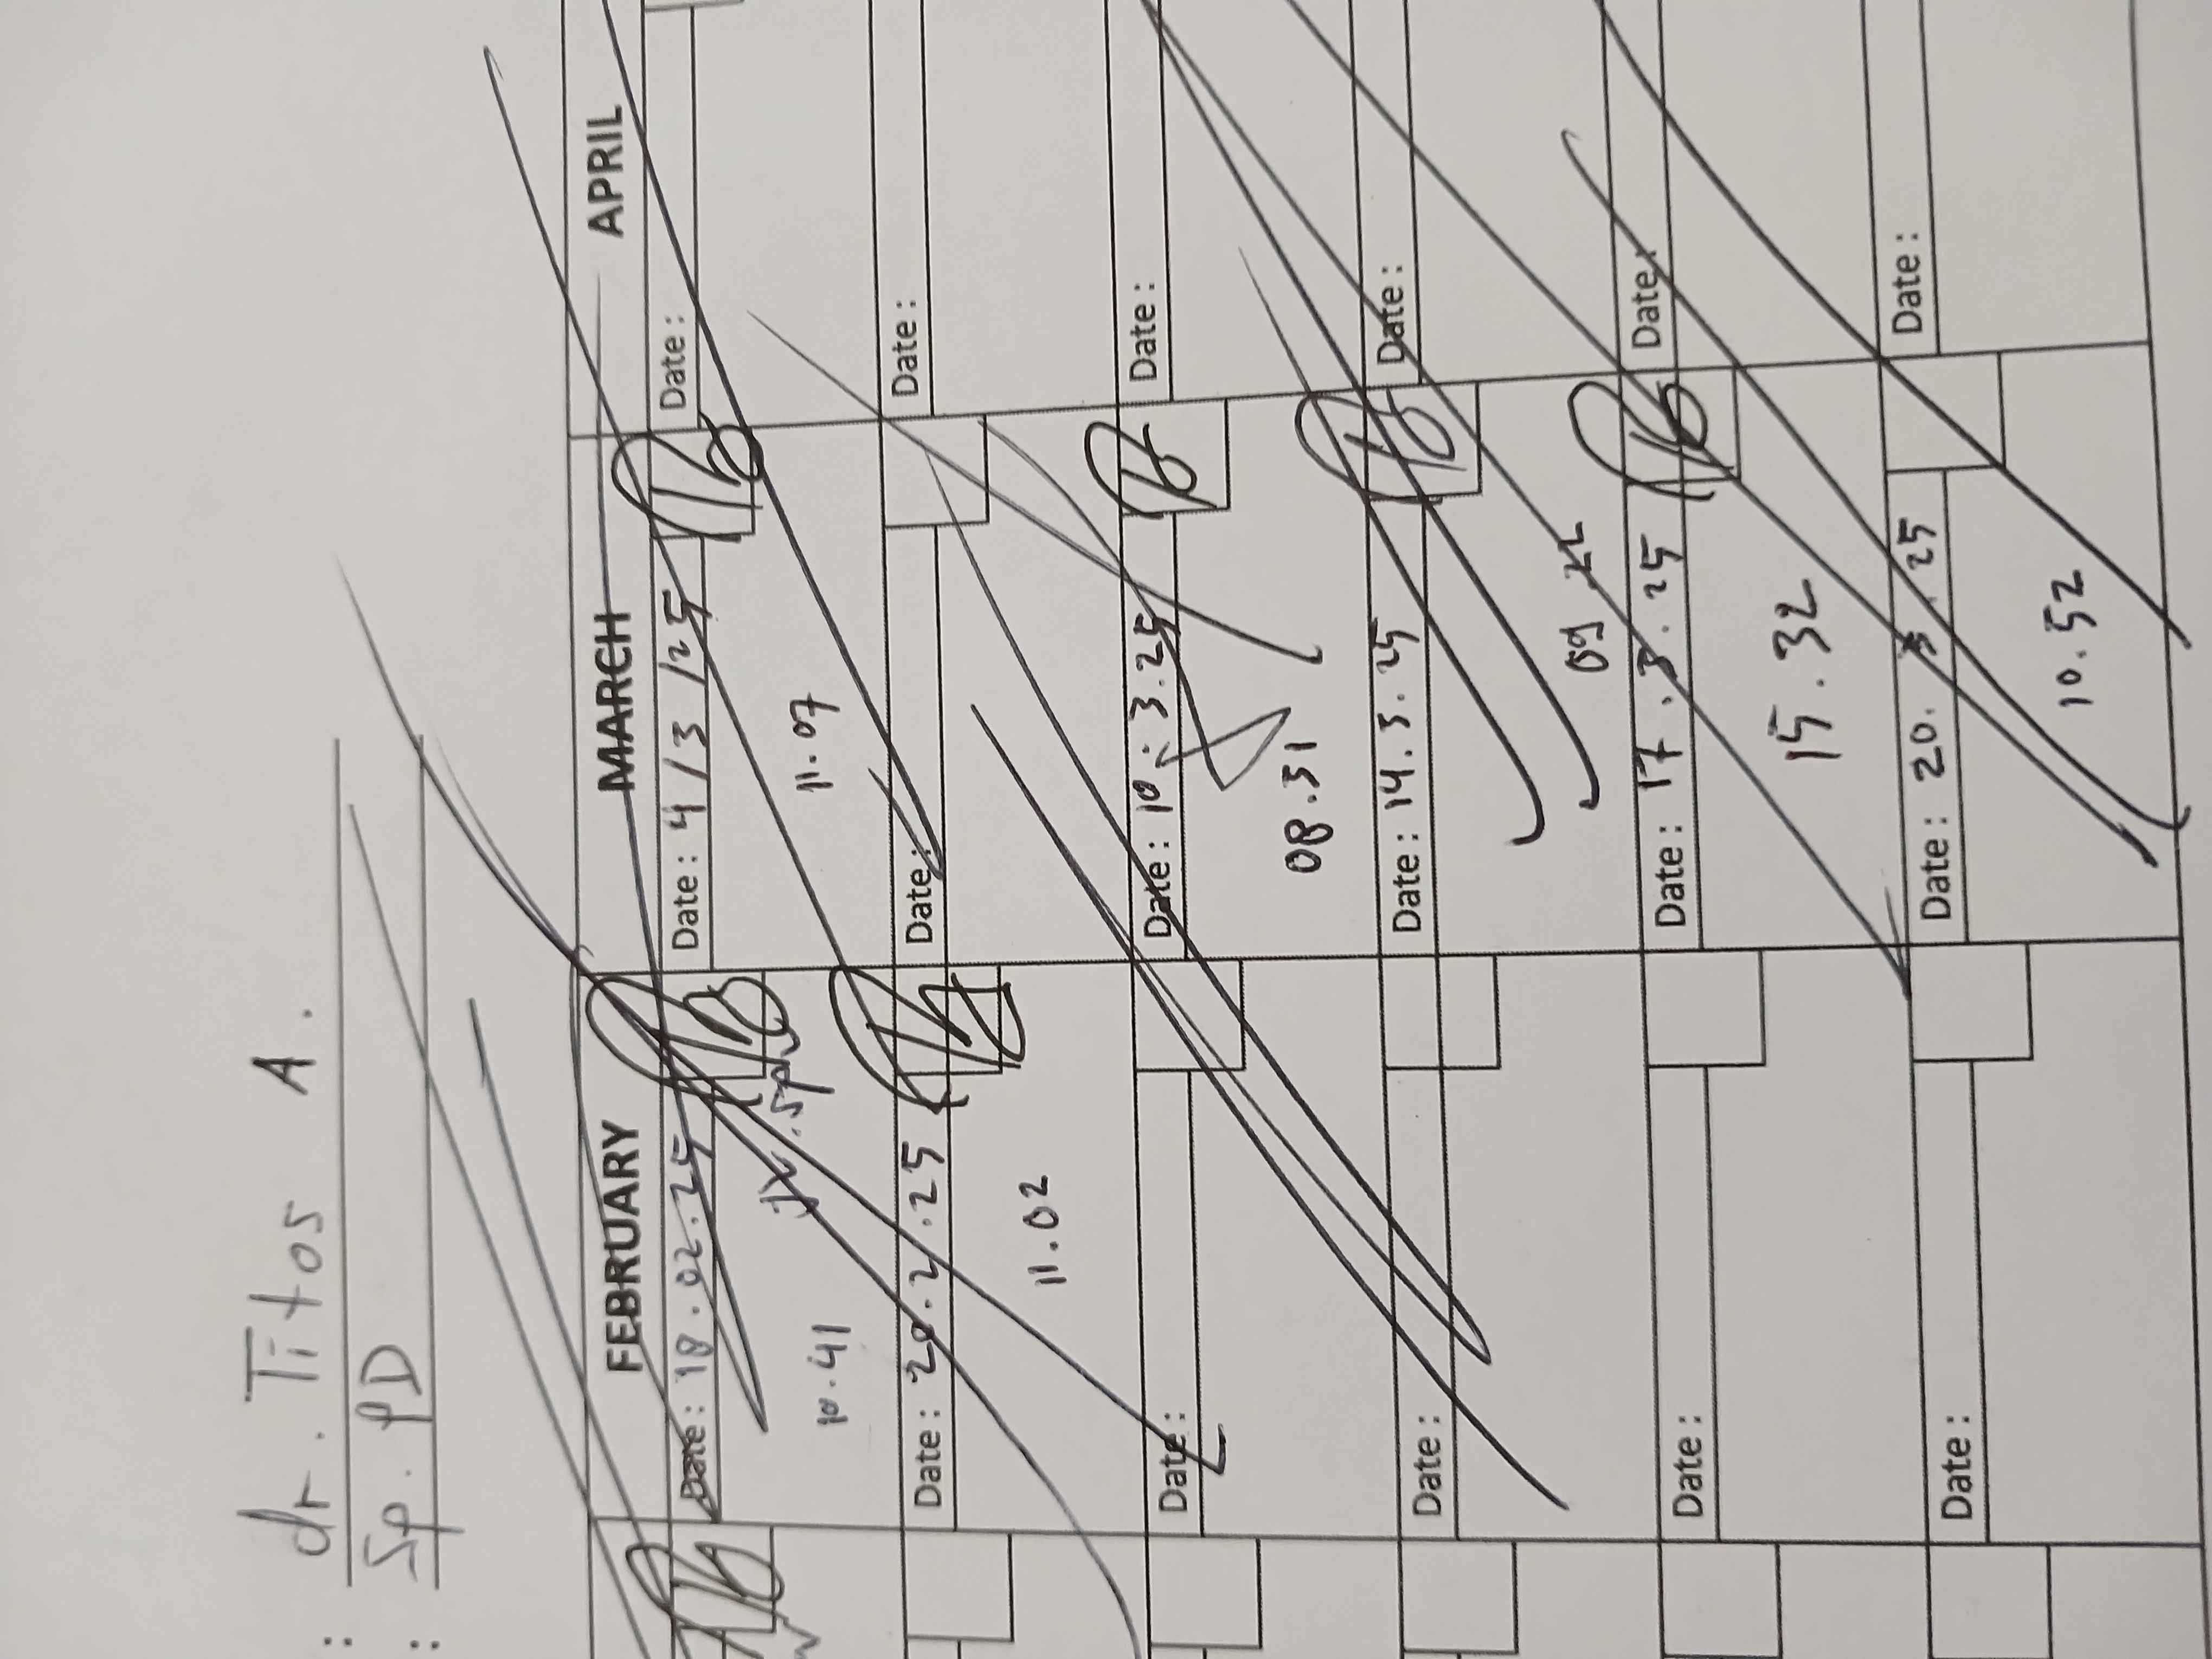 : dr. Titos A.
: Sp. PD
FEBRUARY MARCH APRIL
Date: 18.02.25
10.41
Date: 4/3/25
11.07
Date:
Date: 20.2.25
11.02
Date:
Date:
Date:
Date: 10.3.25
08.51
Date:
Date:
Date: 14.3.25
Date:
Date:
Date: 17.3.25
15.32
Date:
Date:
Date: 20. 25
10.52
Date: